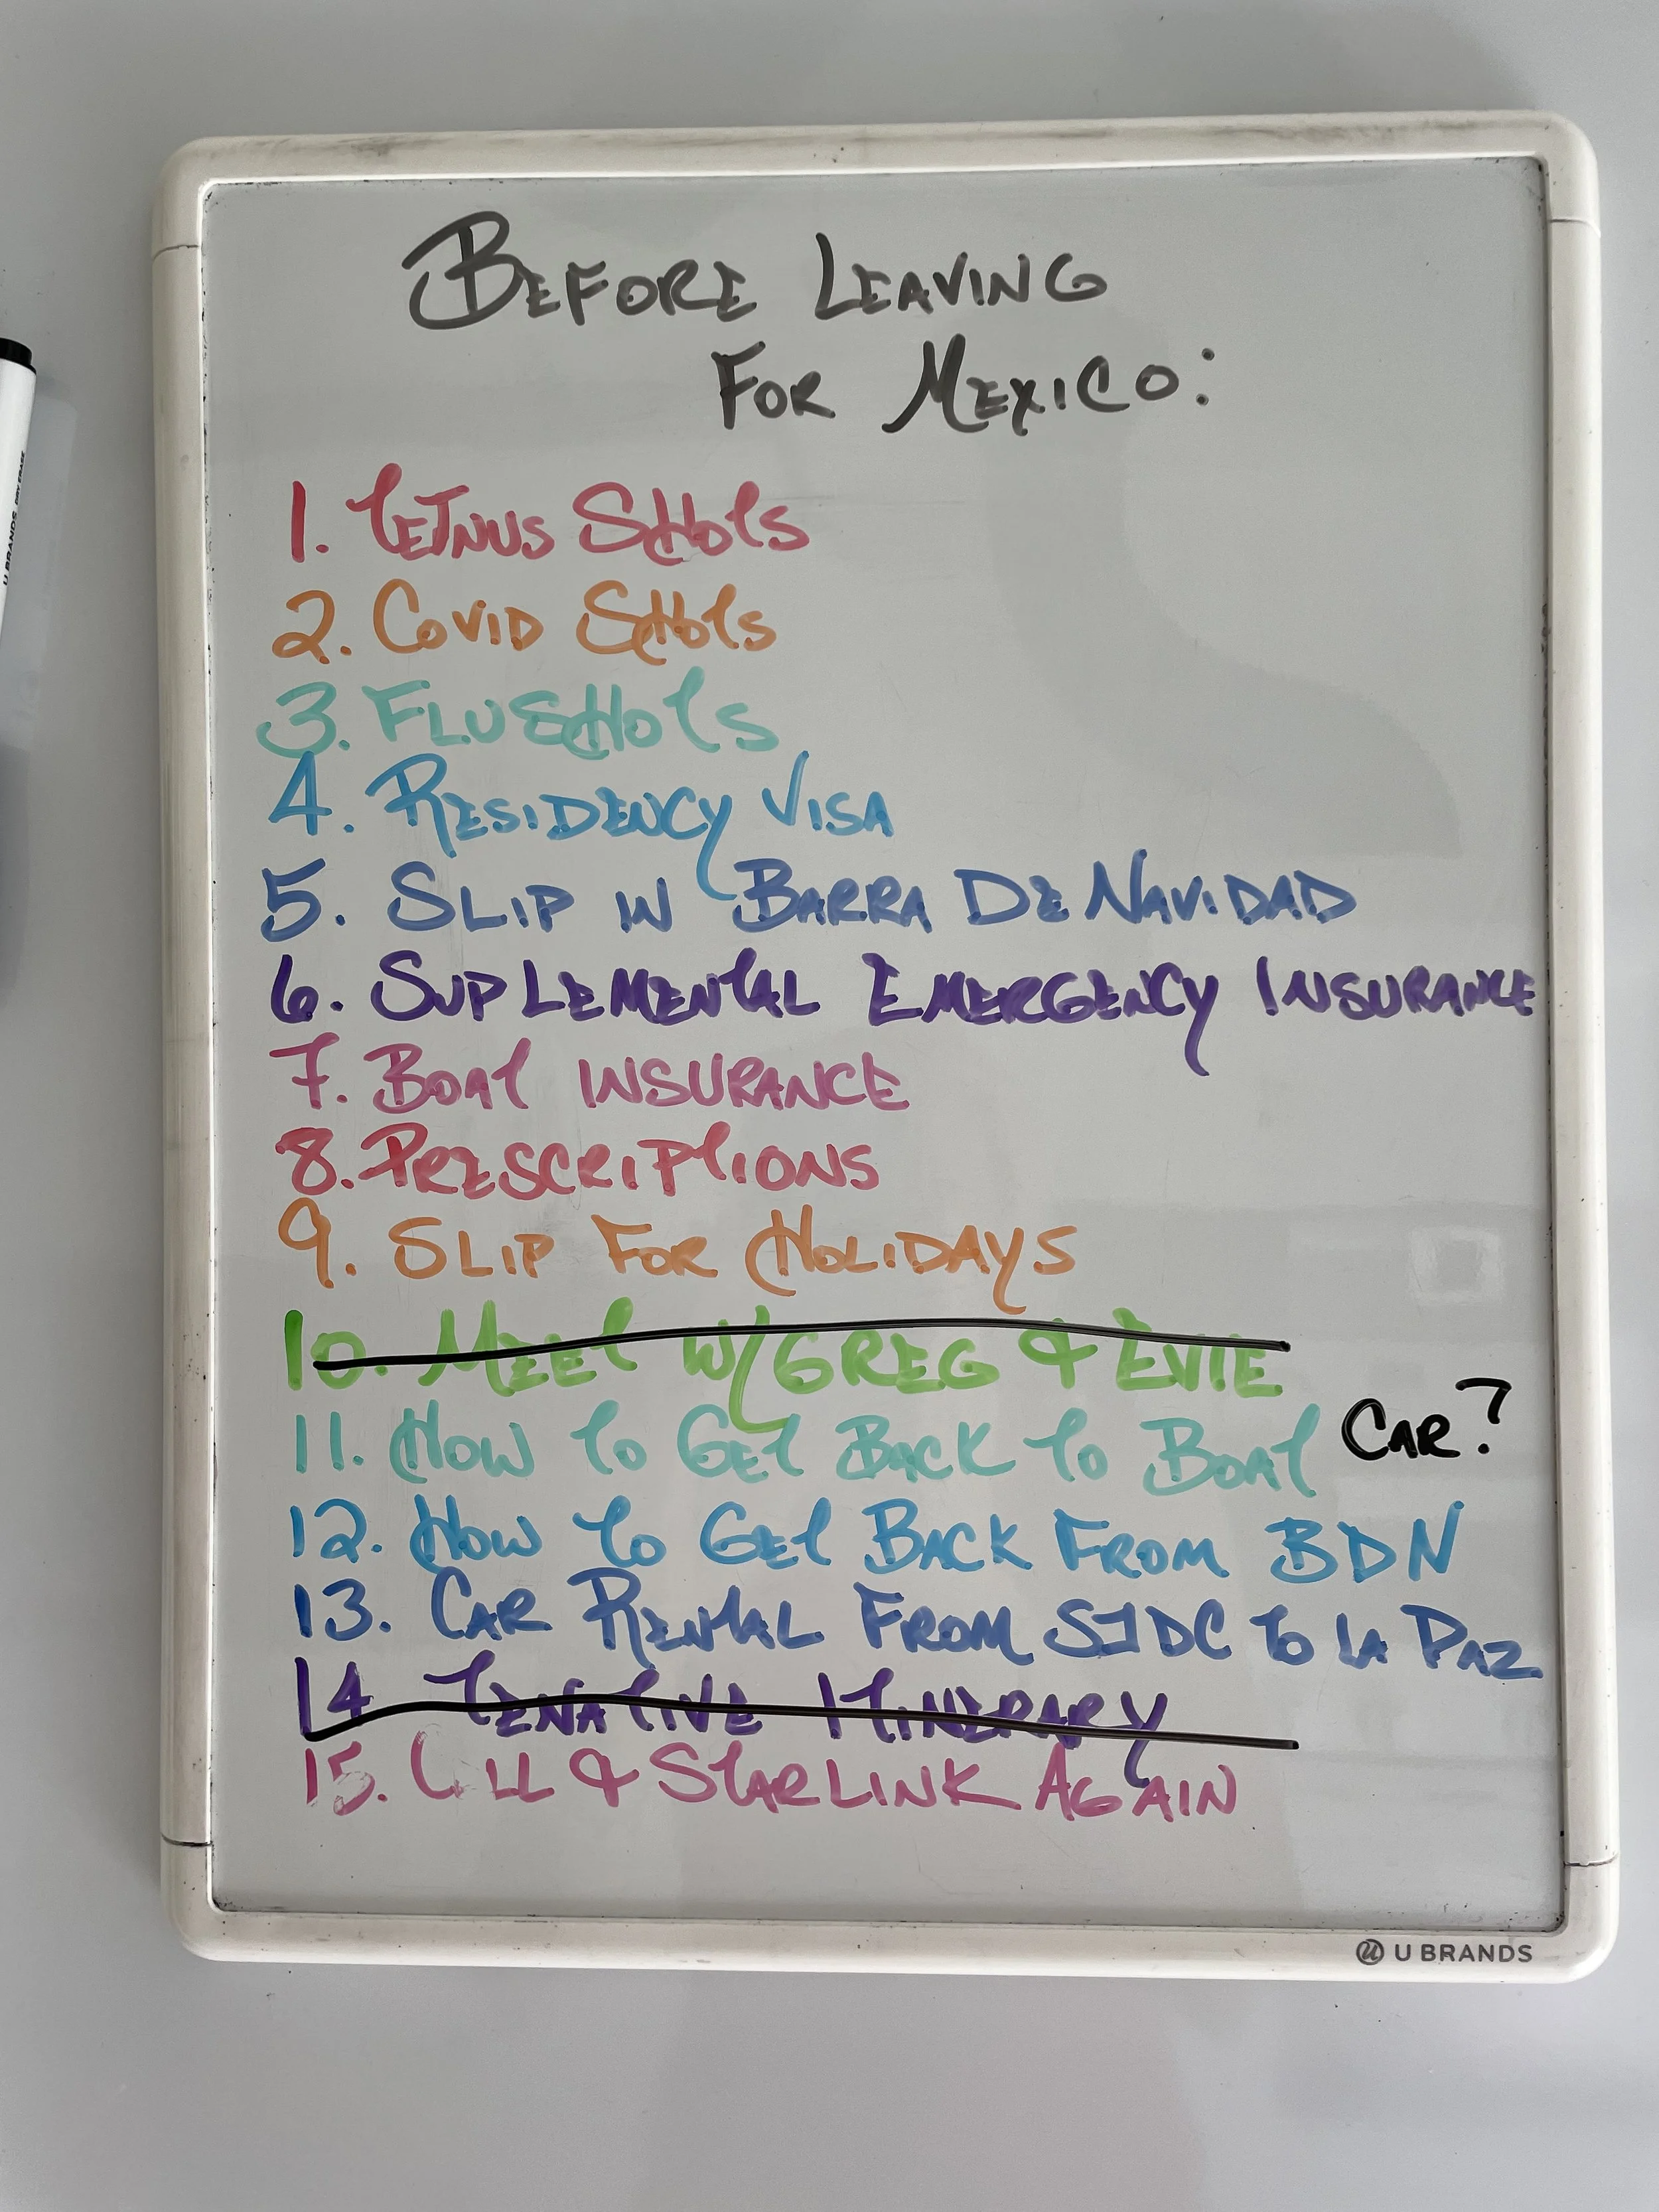 BEFORE LEAVING
FOR MEXICO:
1. TETNUS SHOTS
2. COVID SHOTS
3. FLU SHOTS
4. RESIDENCY VISA
5. SLIP IN BARRA DE NAVIDAD
6. SUPLEMENTAL EMERGENCY INSURANCE
7. BOAT INSURANCE
8. PRESCRIPTIONS
9. SLIP FOR HOLIDAYS
10. MEET W/GREG & EVIE
11. HOW TO GET BACK TO BOAT CAR?
12. HOW TO GET BACK FROM BDN
13. CAR RENTAL FROM SJDC TO LA PAZ
14 TENATIVE ITINERARY
15. & STARLINK AGAIN
U BRANDS
U BRANDS DRY ERASE